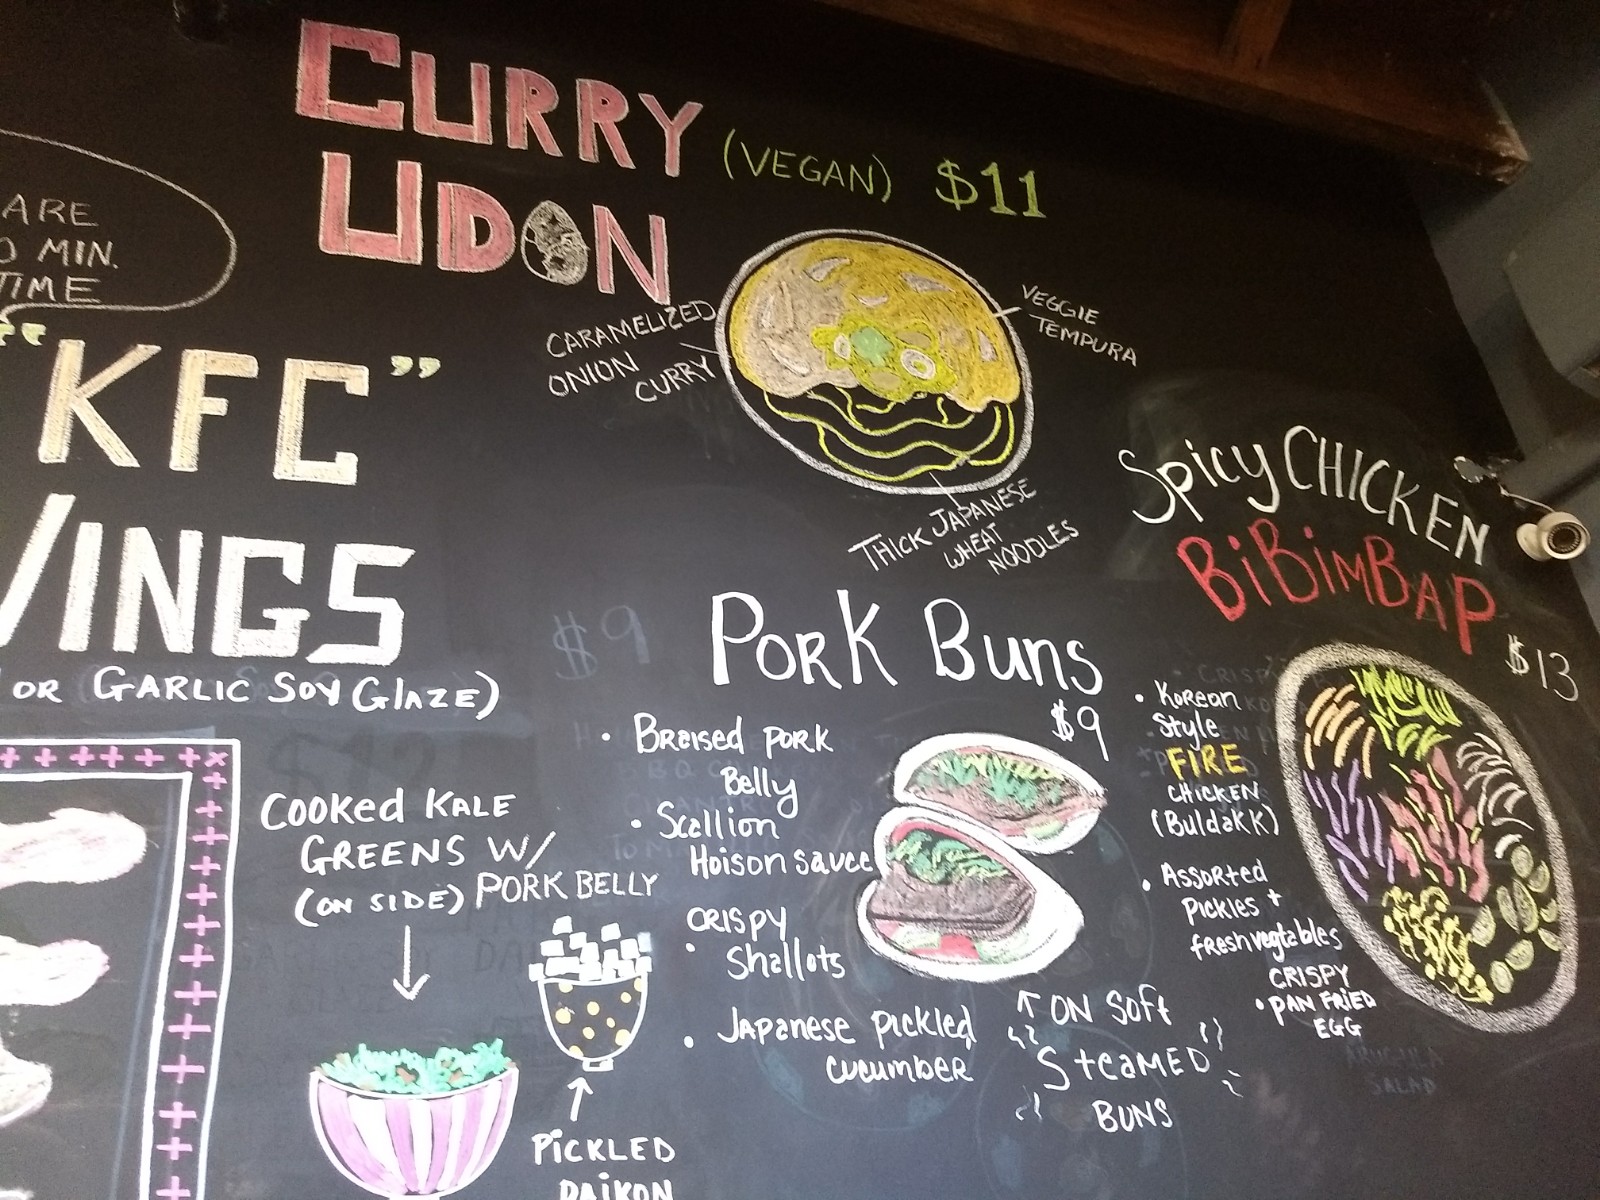 CURRY
UDON
(VEGAN) $11
CARAMELIZED
ONION
CURRY
VEGGIE
TEMPURA
THICK JAPANESE
WHEAT
NOODLES
ARE
MIN.
TIME
"KFC"
INGS
OR GARLIC SOY GLAZE)
COOKED KALE
GREENS W/
(ON SIDE) PORK BELLY
PICKLED
DAIKON
$9
PORK BUNS
$9
• Braised PORK
Belly
• Scallion
Hoison sauce
CRISPY
• Shallots
• JAPanese pickled
cucumber
↑ ON SOFT
STEAMED
BUNS
Spicy CHICKEN
BiBimBAP
$13
• Korean
Style
FIRE
CHICKEN
(BuldaKK)
• Assorted
Pickles +
fresh vegtables
CRISPY
• PAN FRIED
EGG
ARUGULA
SALAD